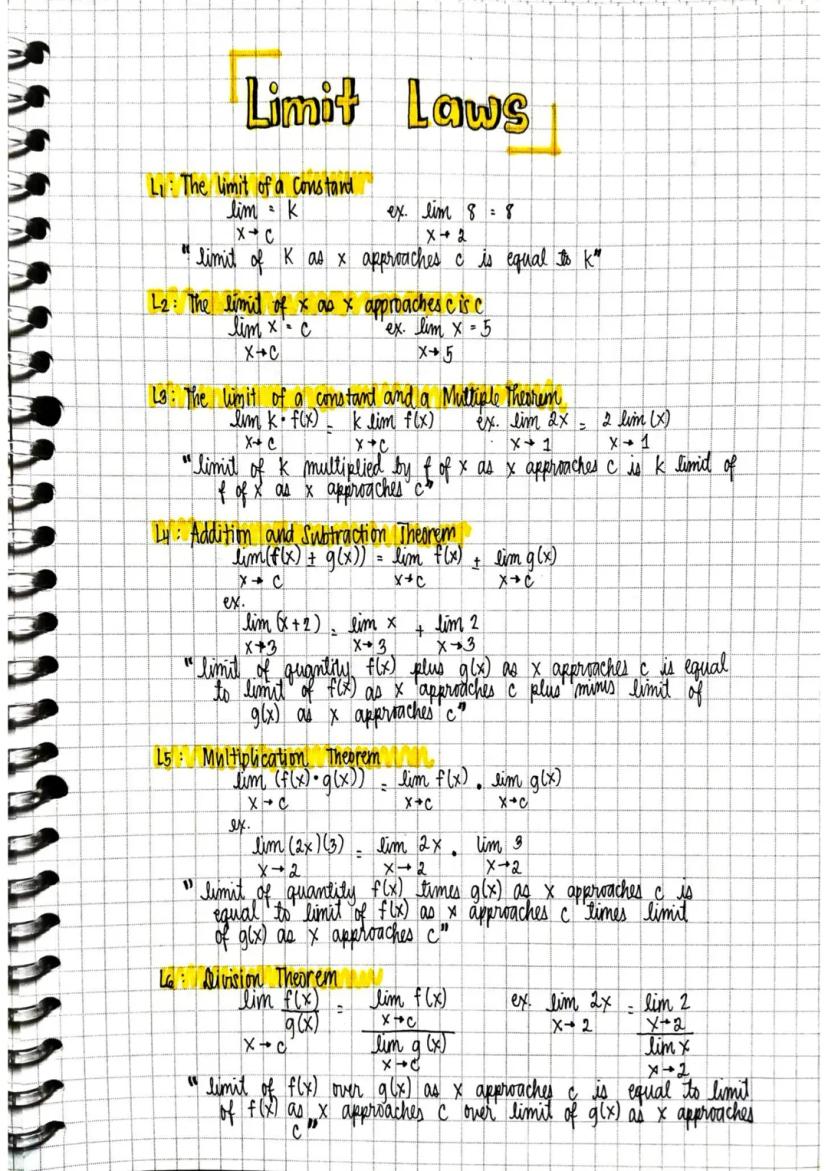 Limit Laws
L1: The limit of a constant
lim = k ex. lim 8 = 8
x→c x→2
"limit of k as x approaches c is equal to k"
L2: The limit of x as x approaches c is c
lim x = c ex. lim x = 5
x→c x→5
L3: The limit of a constant and a Multiple Theorem
lim k·f(x) = k lim f(x) ex. lim 2x = 2 lim(x)
x→c x→c x→1 x→1
"limit of k multiplied by f of x as x approaches c is k limit of
f of x as x approaches c"
L4: Addition and Subtraction Theorem
lim(f(x) ± g(x)) = lim f(x) ± lim g(x)
x→c x→c x→c
ex.
lim(x+2) = lim x + lim 2
x→3 x→3 x→3
"limit of quantity f(x) plus g(x) as x approaches c is equal
to limit of f(x) as x approaches c plus minus limit of
g(x) as x approaches c"
L5: Multiplication Theorem
lim (f(x)·g(x)) = lim f(x) · lim g(x)
x→c x→c x→c
ex.
lim(2x)(3) = lim 2x · lim 3
x→2 x→2 x→2
"limit of quantity f(x) times g(x) as x approaches c is
equal to limit of f(x) as x approaches c times limit
of g(x) as x approaches c"
L6: Division Theorem
lim f(x) = lim f(x) ex. lim 2x = lim 2
g(x) x→c x→2 x→2
x→c lim g(x) lim x
x→c x→2
"limit of f(x) over g(x) as x approaches c is equal to limit
of f(x) as x approaches c over limit of g(x) as x approaches
c"